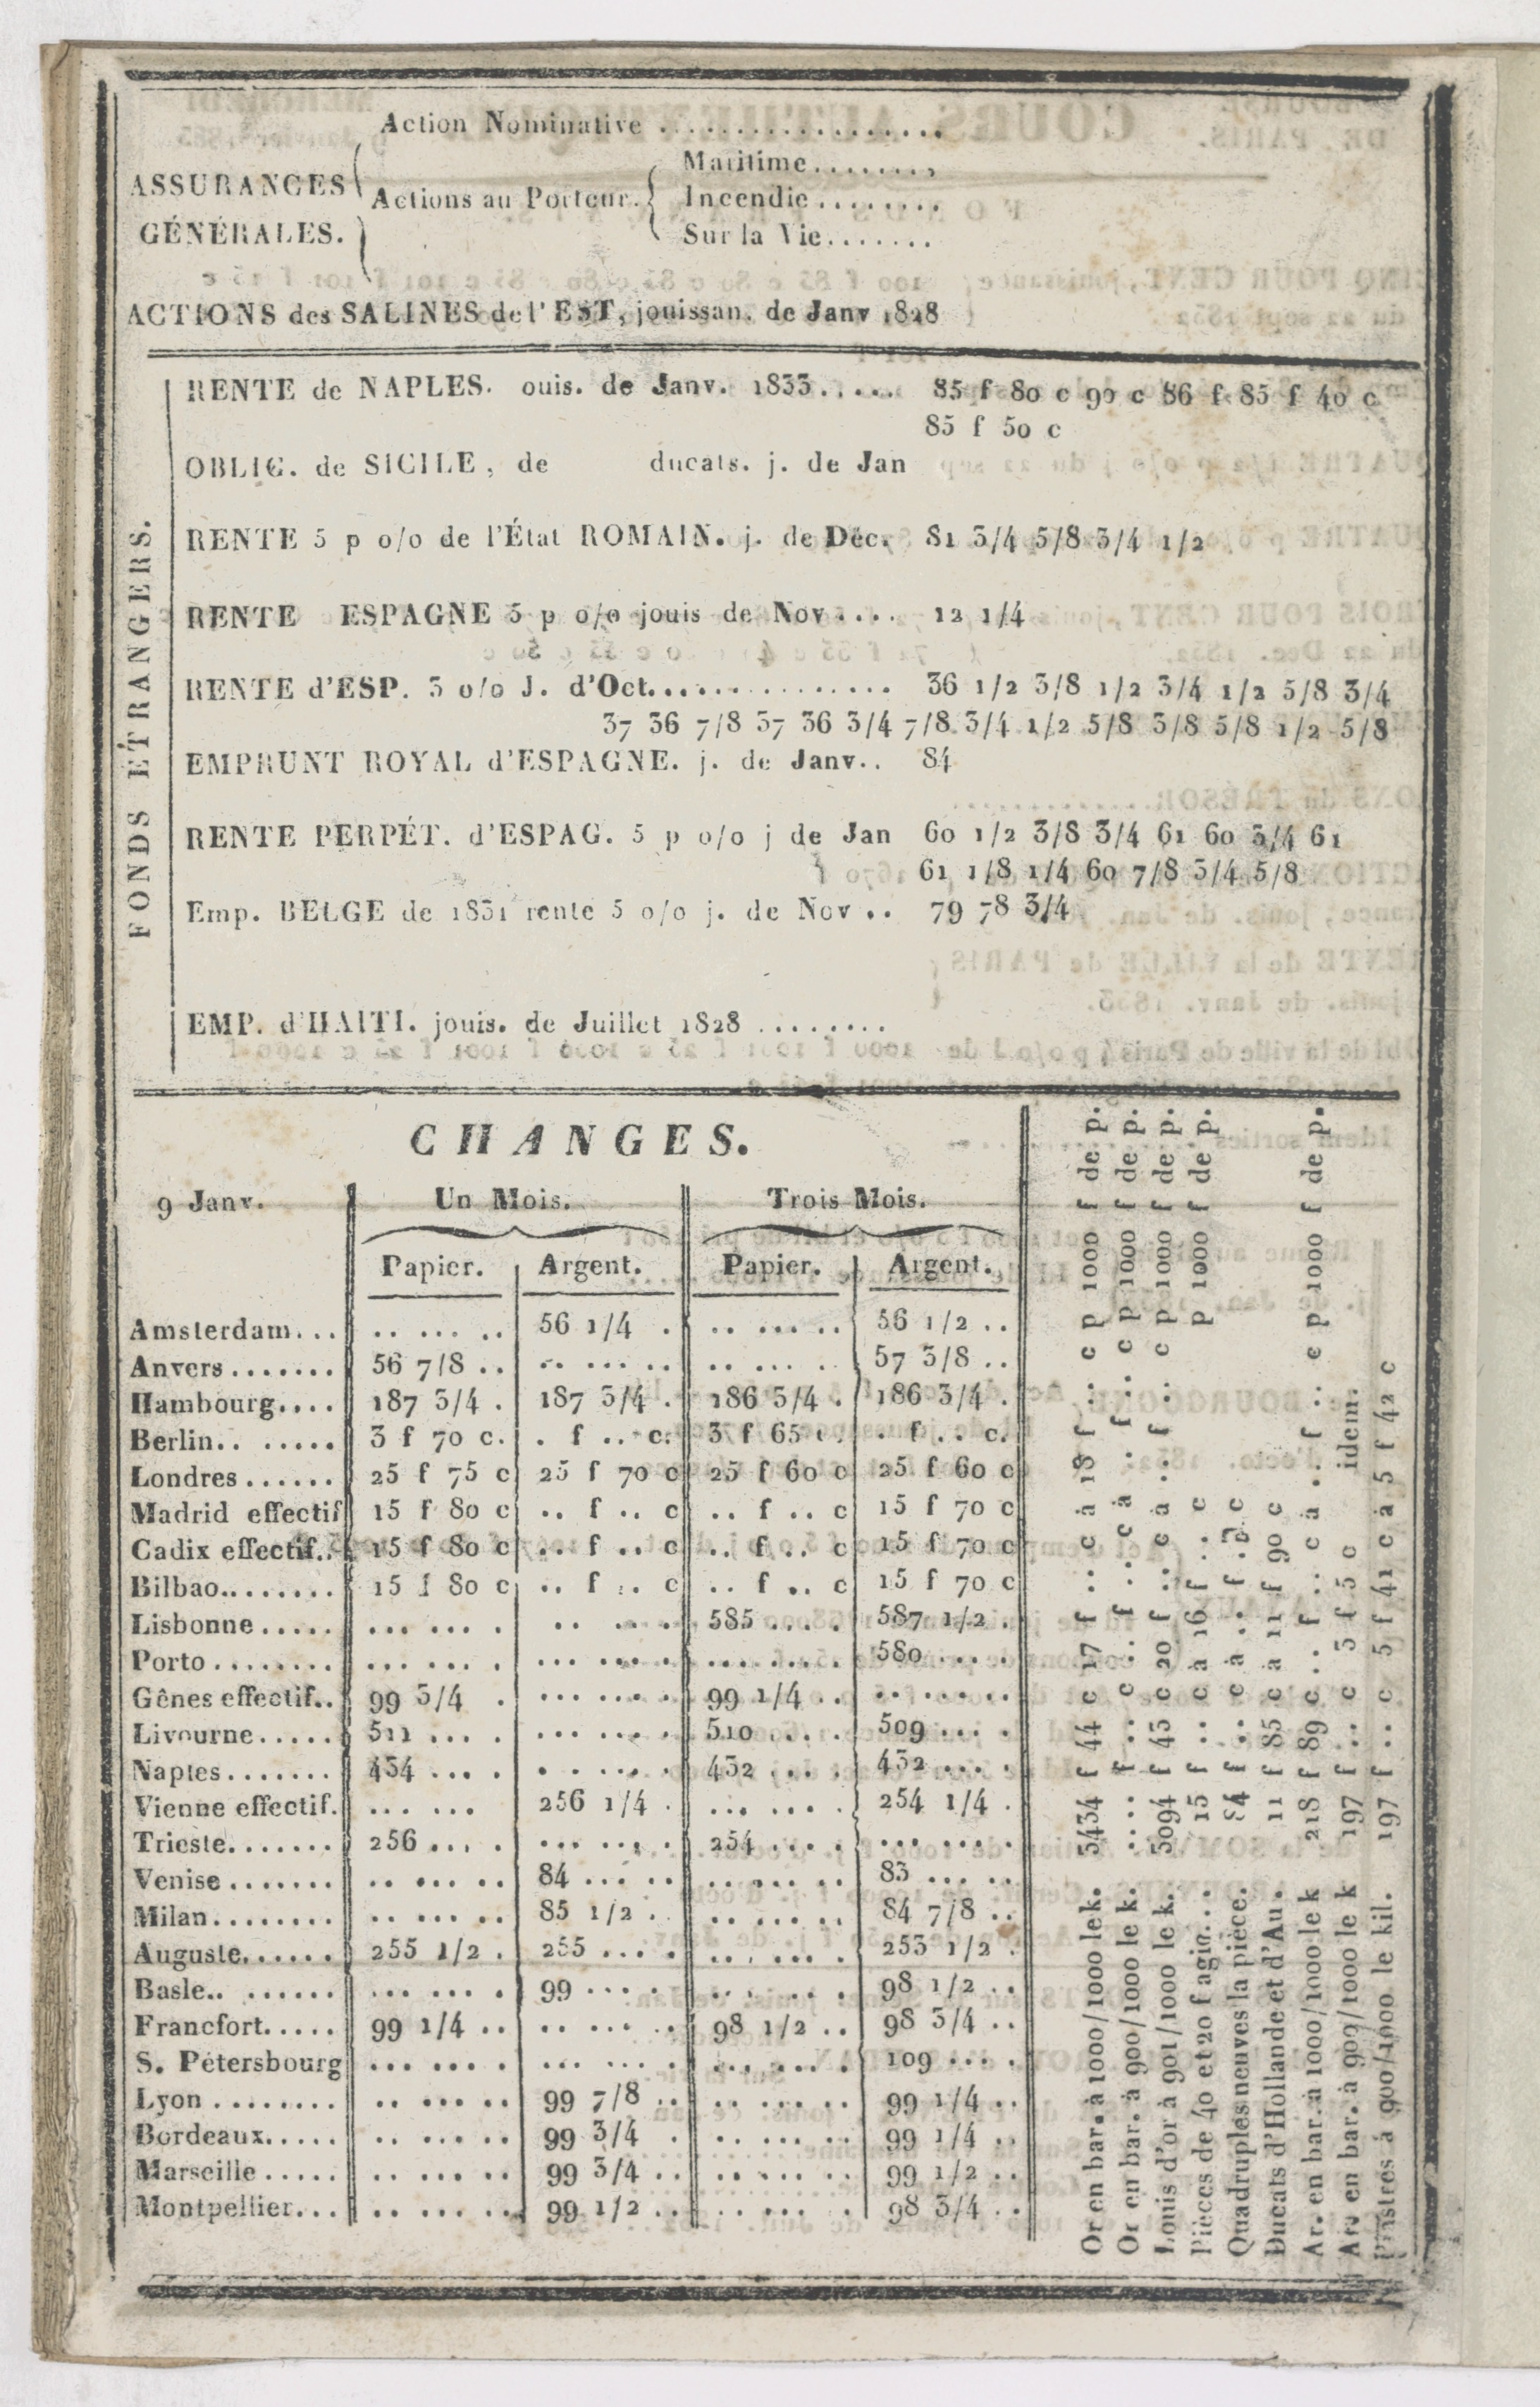 Action Nominative ...................
ASSURANCES
GÉNÉRALES.
Actions au Porteur.
Maritime........
Incendie ........
Sur la Vie.......
ACTIONS des SALINES de l'EST, jouissan. de Janv 1828
FONDS ÉTRANGERS.
RENTE de NAPLES. ouis. de Janv. 1833..... 85 f 80 c 90 c 86 f 85 f 40 c
85 f 50 c
OBLIG. de SICILE, de ducats. j. de Jan
RENTE 5 p o/o de l'État ROMAIN. j. de Déc. 81 3/4 5/8 3/4 1/2
RENTE ESPAGNE 5 p o/o jouis de Nov.... 12 1/4
RENTE d'ESP. 3 o/o J. d'Oct................ 36 1/2 3/8 1/2 3/4 1/2 5/8 3/4
37 36 7/8 37 36 3/4 7/8 3/4 1/2 5/8 3/8 5/8 1/2 5/8
EMPRUNT ROYAL d'ESPAGNE. j. de Janv.. 84
RENTE PERPÉT. d'ESPAG. 5 p o/o j de Jan 60 1/2 3/8 3/4 61 60 3/4 61
61 1/8 1/4 60 7/8 3/4 5/8
Emp. BELGE de 1831 rente 5 o/o j. de Nov .. 79 78 3/4
EMP. d'HAITI. jouis. de Juillet 1828 ........
CHANGES.
9 Janv. Un Mois. Trois Mois.
Papier. Argent. Papier. Argent.
Amsterdam... .. ... .. 56 1/4 . .. ... .. 56 1/2 ..
Anvers....... 56 7/8 .. .. ... .. .. ... .. 57 3/8 ..
Hambourg.... 187 3/4 . 187 3/4 . 186 3/4 . 186 3/4 .
Berlin.. ..... 3 f 70 c. . f .. c. 3 f 65 c. . f .. c.
Londres...... 25 f 75 c 25 f 70 c 25 f 60 c 25 f 60 c
Madrid effectif 15 f 80 c .. f .. c .. f .. c 15 f 70 c
Cadix effectif.. 15 f 80 c .. f .. c .. f .. c 15 f 70 c
Bilbao........ 15 f 80 c .. f .. c .. f .. c 15 f 70 c
Lisbonne..... ... ... . .. ... . 585 .... 587 1/2 .
Porto........ ... ... . ... .... ... .... 580 ....
Gênes effectif.. 99 3/4 . ... .... 99 1/4 .. ... ....
Livourne..... 511 .... ... .... 510 .... 509 ....
Naples....... 434 .... . . .... 432 .... 432 ....
Vienne effectif. ... ... 256 1/4 . ... ... . 254 1/4 .
Trieste....... 256 .... ... .... 254 .... ... ....
Venise....... .. ... .. 84 ... .. .. ... .. 83 ... ..
Milan........ .. ... .. 85 1/2 . .. ... .. 84 7/8 ..
Auguste...... 255 1/2 . 255 .... .. ... . 253 1/2 .
Basle.. ...... ... ... . 99 .... .. ... . 98 1/2 ..
Francfort..... 99 1/4 .. .. ... .. 98 1/2 .. 98 3/4 ..
S. Pétersbourg ... ... . ... ... . ... ... . 109 ....
Lyon ........ .. ... .. 99 7/8 .. .. ... .. 99 1/4 ..
Bordeaux..... .. ... .. 99 3/4 . .. ... .. 99 1/4 ..
Marseille..... .. ... .. 99 3/4 .. .. ... .. 99 1/2 ..
Montpellier... .. ... .. 99 1/2 .. .. ... . 98 3/4 ..
Or en bar. à 1000/1000 le k. 3434 f 44 c 17 f .. c à 18 f .. c p 1000 f de p.
Or en bar. à 900/1000 le k. .... f .. c .. f .. c à .. f .. c p 1000 f de p.
Louis d'or à 901/1000 le k. 3094 f 43 c 20 f .. c à .. f .. c p 1000 f de p.
Pièces de 40 et 20 f agio... 15 f .. c à 16 f .. c p 1000 f de p.
Quadruples neuves la pièce. 84 f .. c à .. f .. c
Ducats d'Hollande et d'Au. 11 f 85 c à 11 f 90 c
Ar. en bar. à 1000/1000 le k 218 f 89 c .. f .. c à .. f .. c p 1000 f de p.
Ar. en bar. à 900/1000 le k 197 f .. c 5 f 5 c idem.
Piastres à 900/1000 le kil. 197 f .. c 5 f 41 c à 5 f 42 c